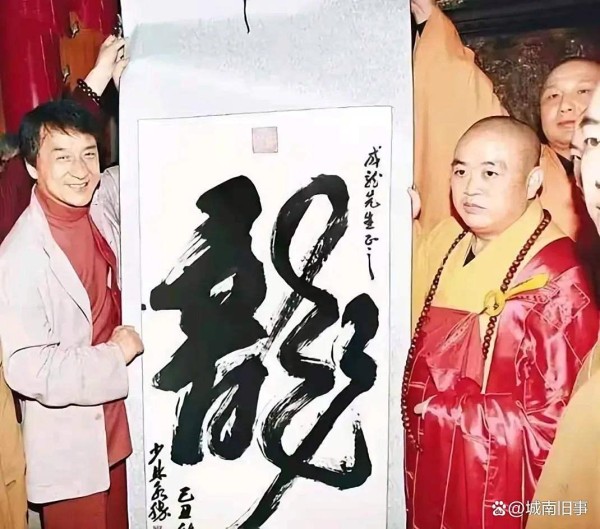 成龙先生正之
龍
己丑
少林永
@城南旧事